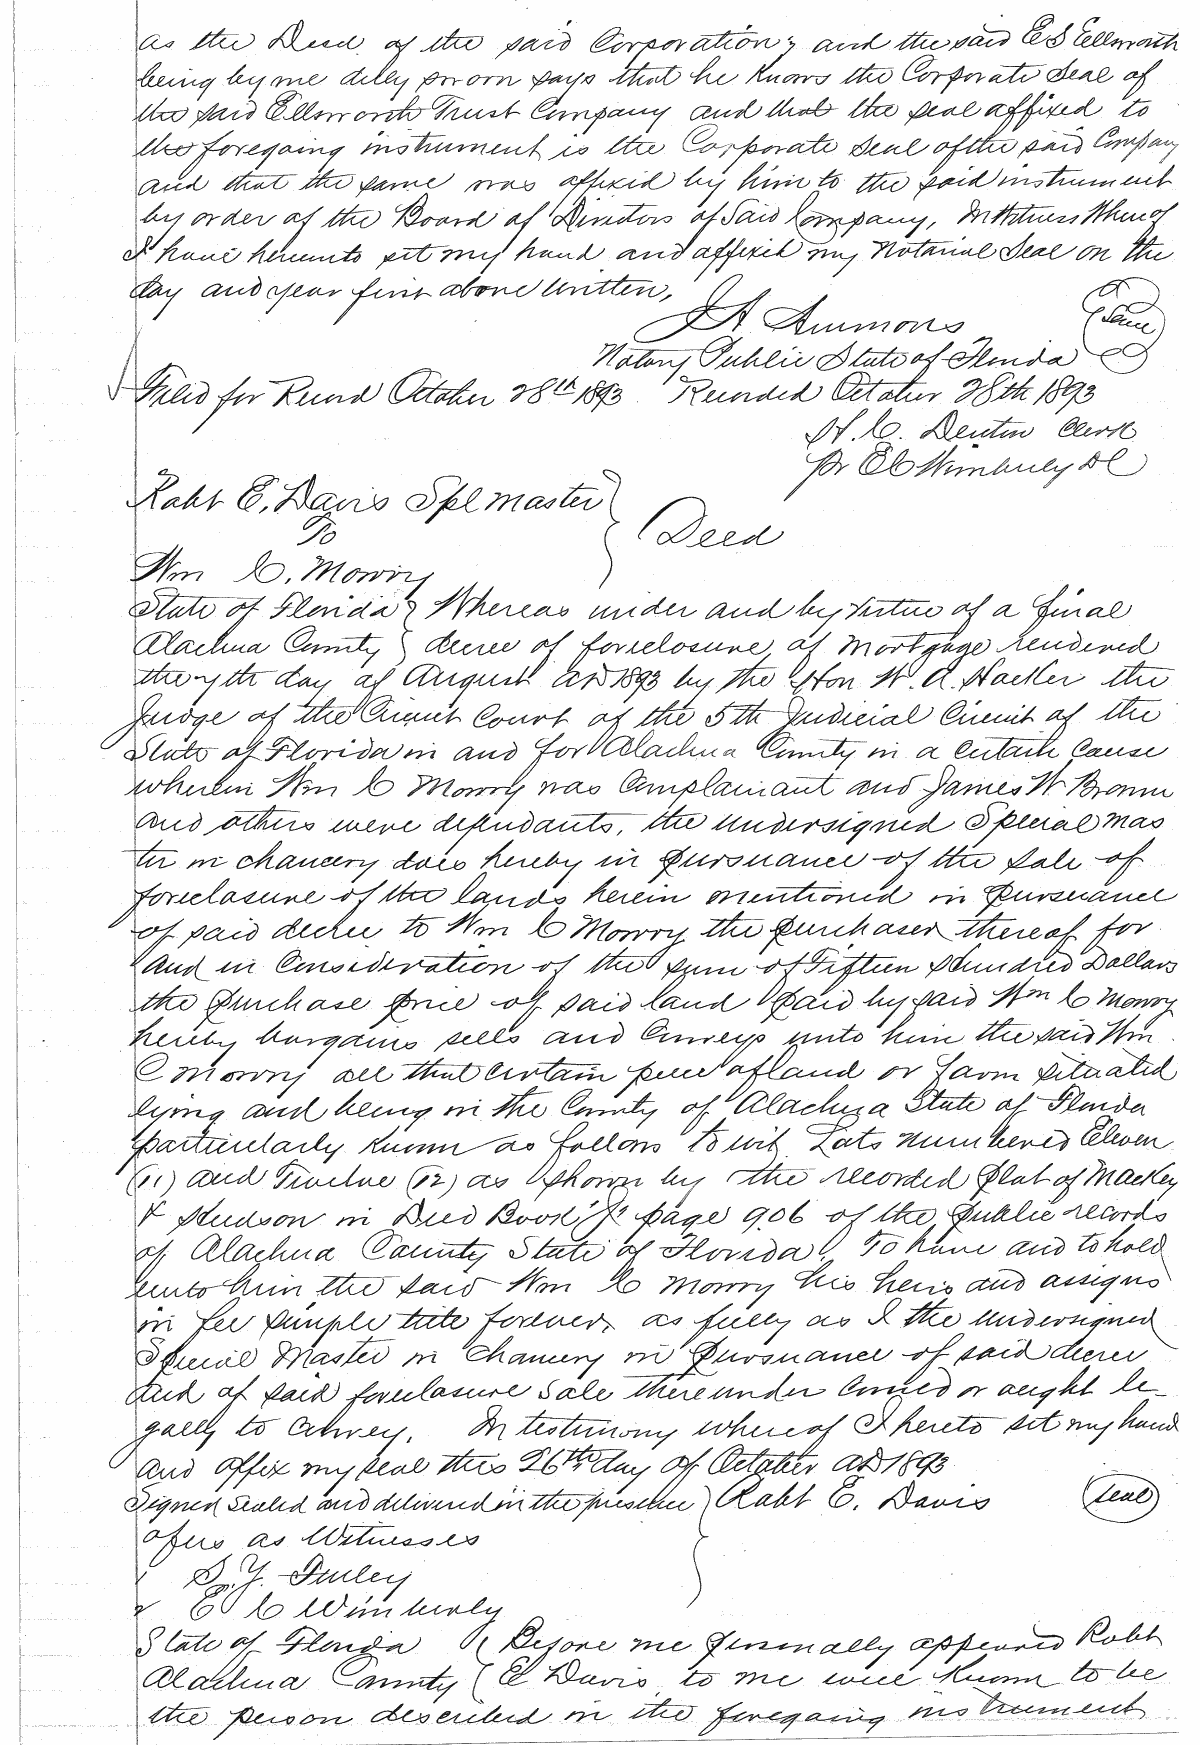 as the Deed of the said Corporation; and the said E S Ellsworth
being by me duly sworn says that he knows the Corporate Seal of
the said Ellsworth Trust Company and that the seal affixed to
the foregoing instrument is the Corporate Seal of the said Company
and that the same was affixed by him to the said instrument
by order of the Board of Directors of Said Company, In Witness Whereof
I have hereunto set my hand and affixed my Notarial Seal on the
day and year first above written,
J A Ammons
Seal
Notary Public State of Florida
Filed for Record October 28th 1893 Recorded October 28th 1893
H. C. Denton Clerk
pr E C Wimberly D C
Robt E. Davis Spl master
To
Deed
Wm C. Mowry
State of Florida } Whereas under and by virtue of a final
Alachua County } decree of foreclosure of Mortgage rendered
the 7th day of August AD 1893 by the Hon W. A. Hocker the
Judge of the Circuit Court of the 5th Judicial Circuit of the
State of Florida in and for Alachua County in a certain cause
wherein Wm C Mowry was Complainant and James W Brown
and others were defendants, the undersigned Special Mas
ter in chancery does hereby in pursuance of the sale of
foreclosure of the lands herein mentioned in pursuance
of said decree to Wm C Mowry the purchaser thereof for
and in Consideration of the sum of Fifteen hundred Dollars
the purchase price of said land paid by said Wm C Mowry
hereby bargains sells and Conveys unto him the said Wm
C Mowry all that certain piece of land or farm situated
lying and being in the County of Alachua State of Florida
particularly known as follows to wit Lots numbered Eleven
(11) and Twelve (12) as shown by the recorded plat of Mackey
& Hudson in Deed Book "J" page 906 of the public records
of Alachua County State of Florida. To have and to hold
unto him the said Wm C Mowry his heirs and assigns
in fee simple title forever, as fully as I the undersigned
Special Master in Chancery in pursuance of said decree
and of said foreclosure sale thereunder Could or aught le-
gally to convey. In testimony whereof I hereto set my hand
and affix my seal this 26th day of October AD 1893
Signed Sealed and delivered in the presence } Robt E. Davis (seal)
of us as Witnesses
D. Y. Finley
E C Wimberly
State of Florida } Before me personally appeared Robt
Alachua County } E Davis to me well known to be
the person described in the foregoing instrument